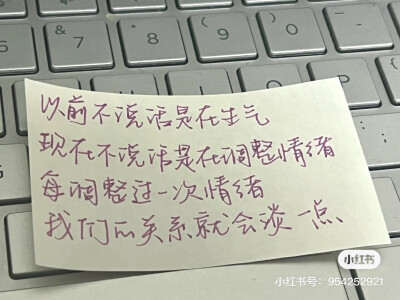 & 7 * 8 ( 9 ) 0
以前不说话是在生气
现在不说话是在调整情绪
每调整过一次情绪
我们的关系就会淡一点
小红书
小红书号：954252921